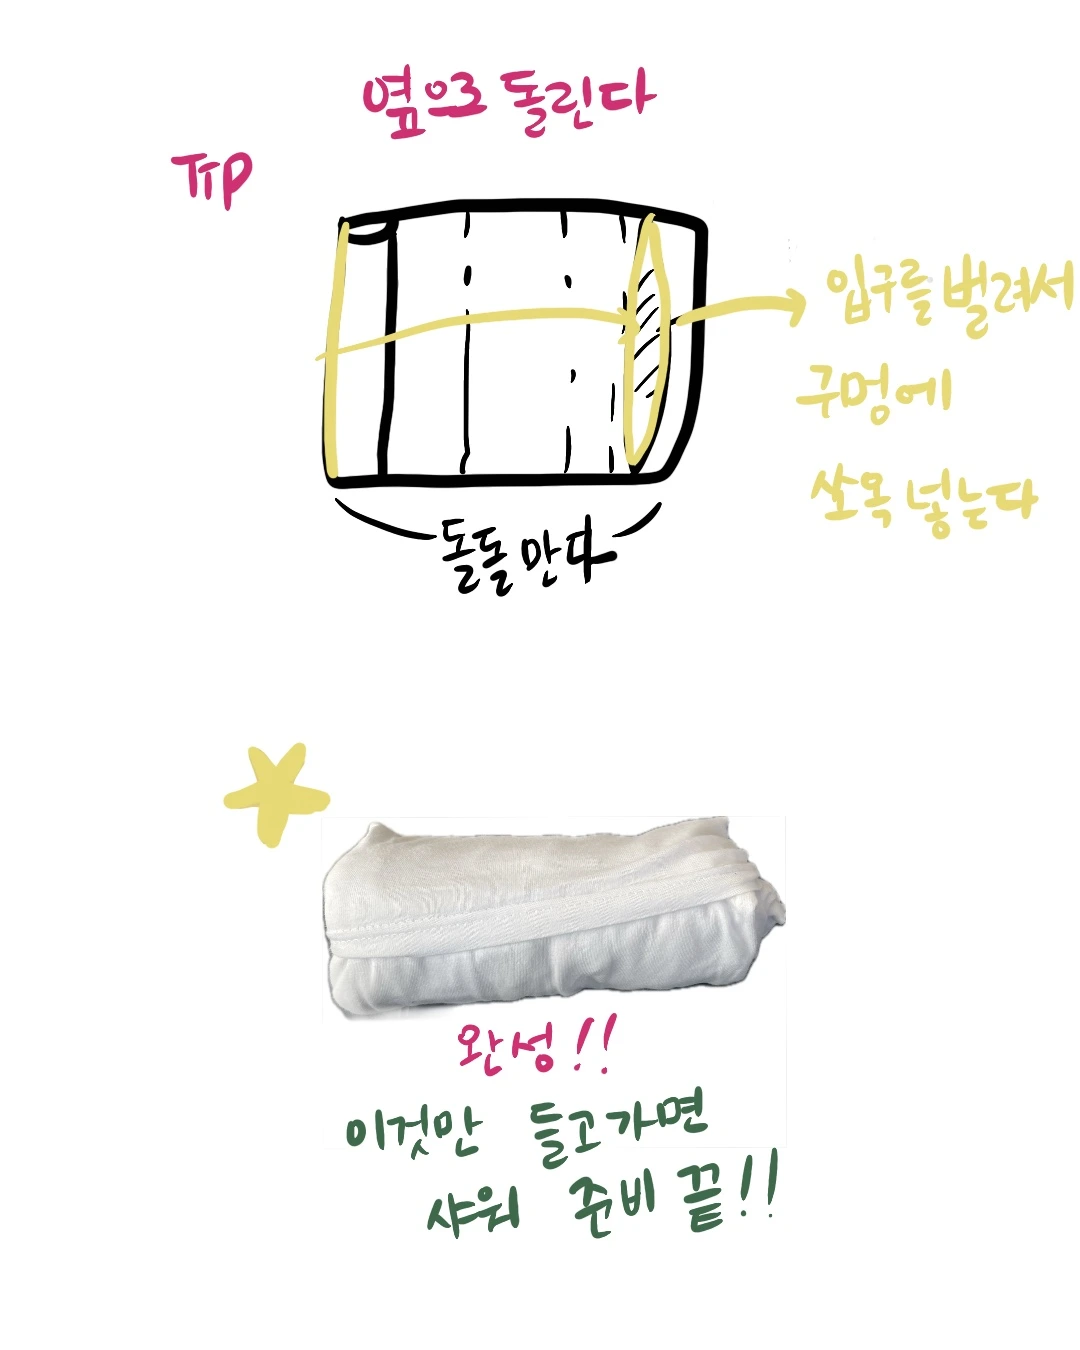 옆으로 돌린다
TIP
입구를 벌려서
구멍에
쏘옥 넣는다
돌돌 만다
완성!!
이것만 들고가면
샤워 준비 끝!!